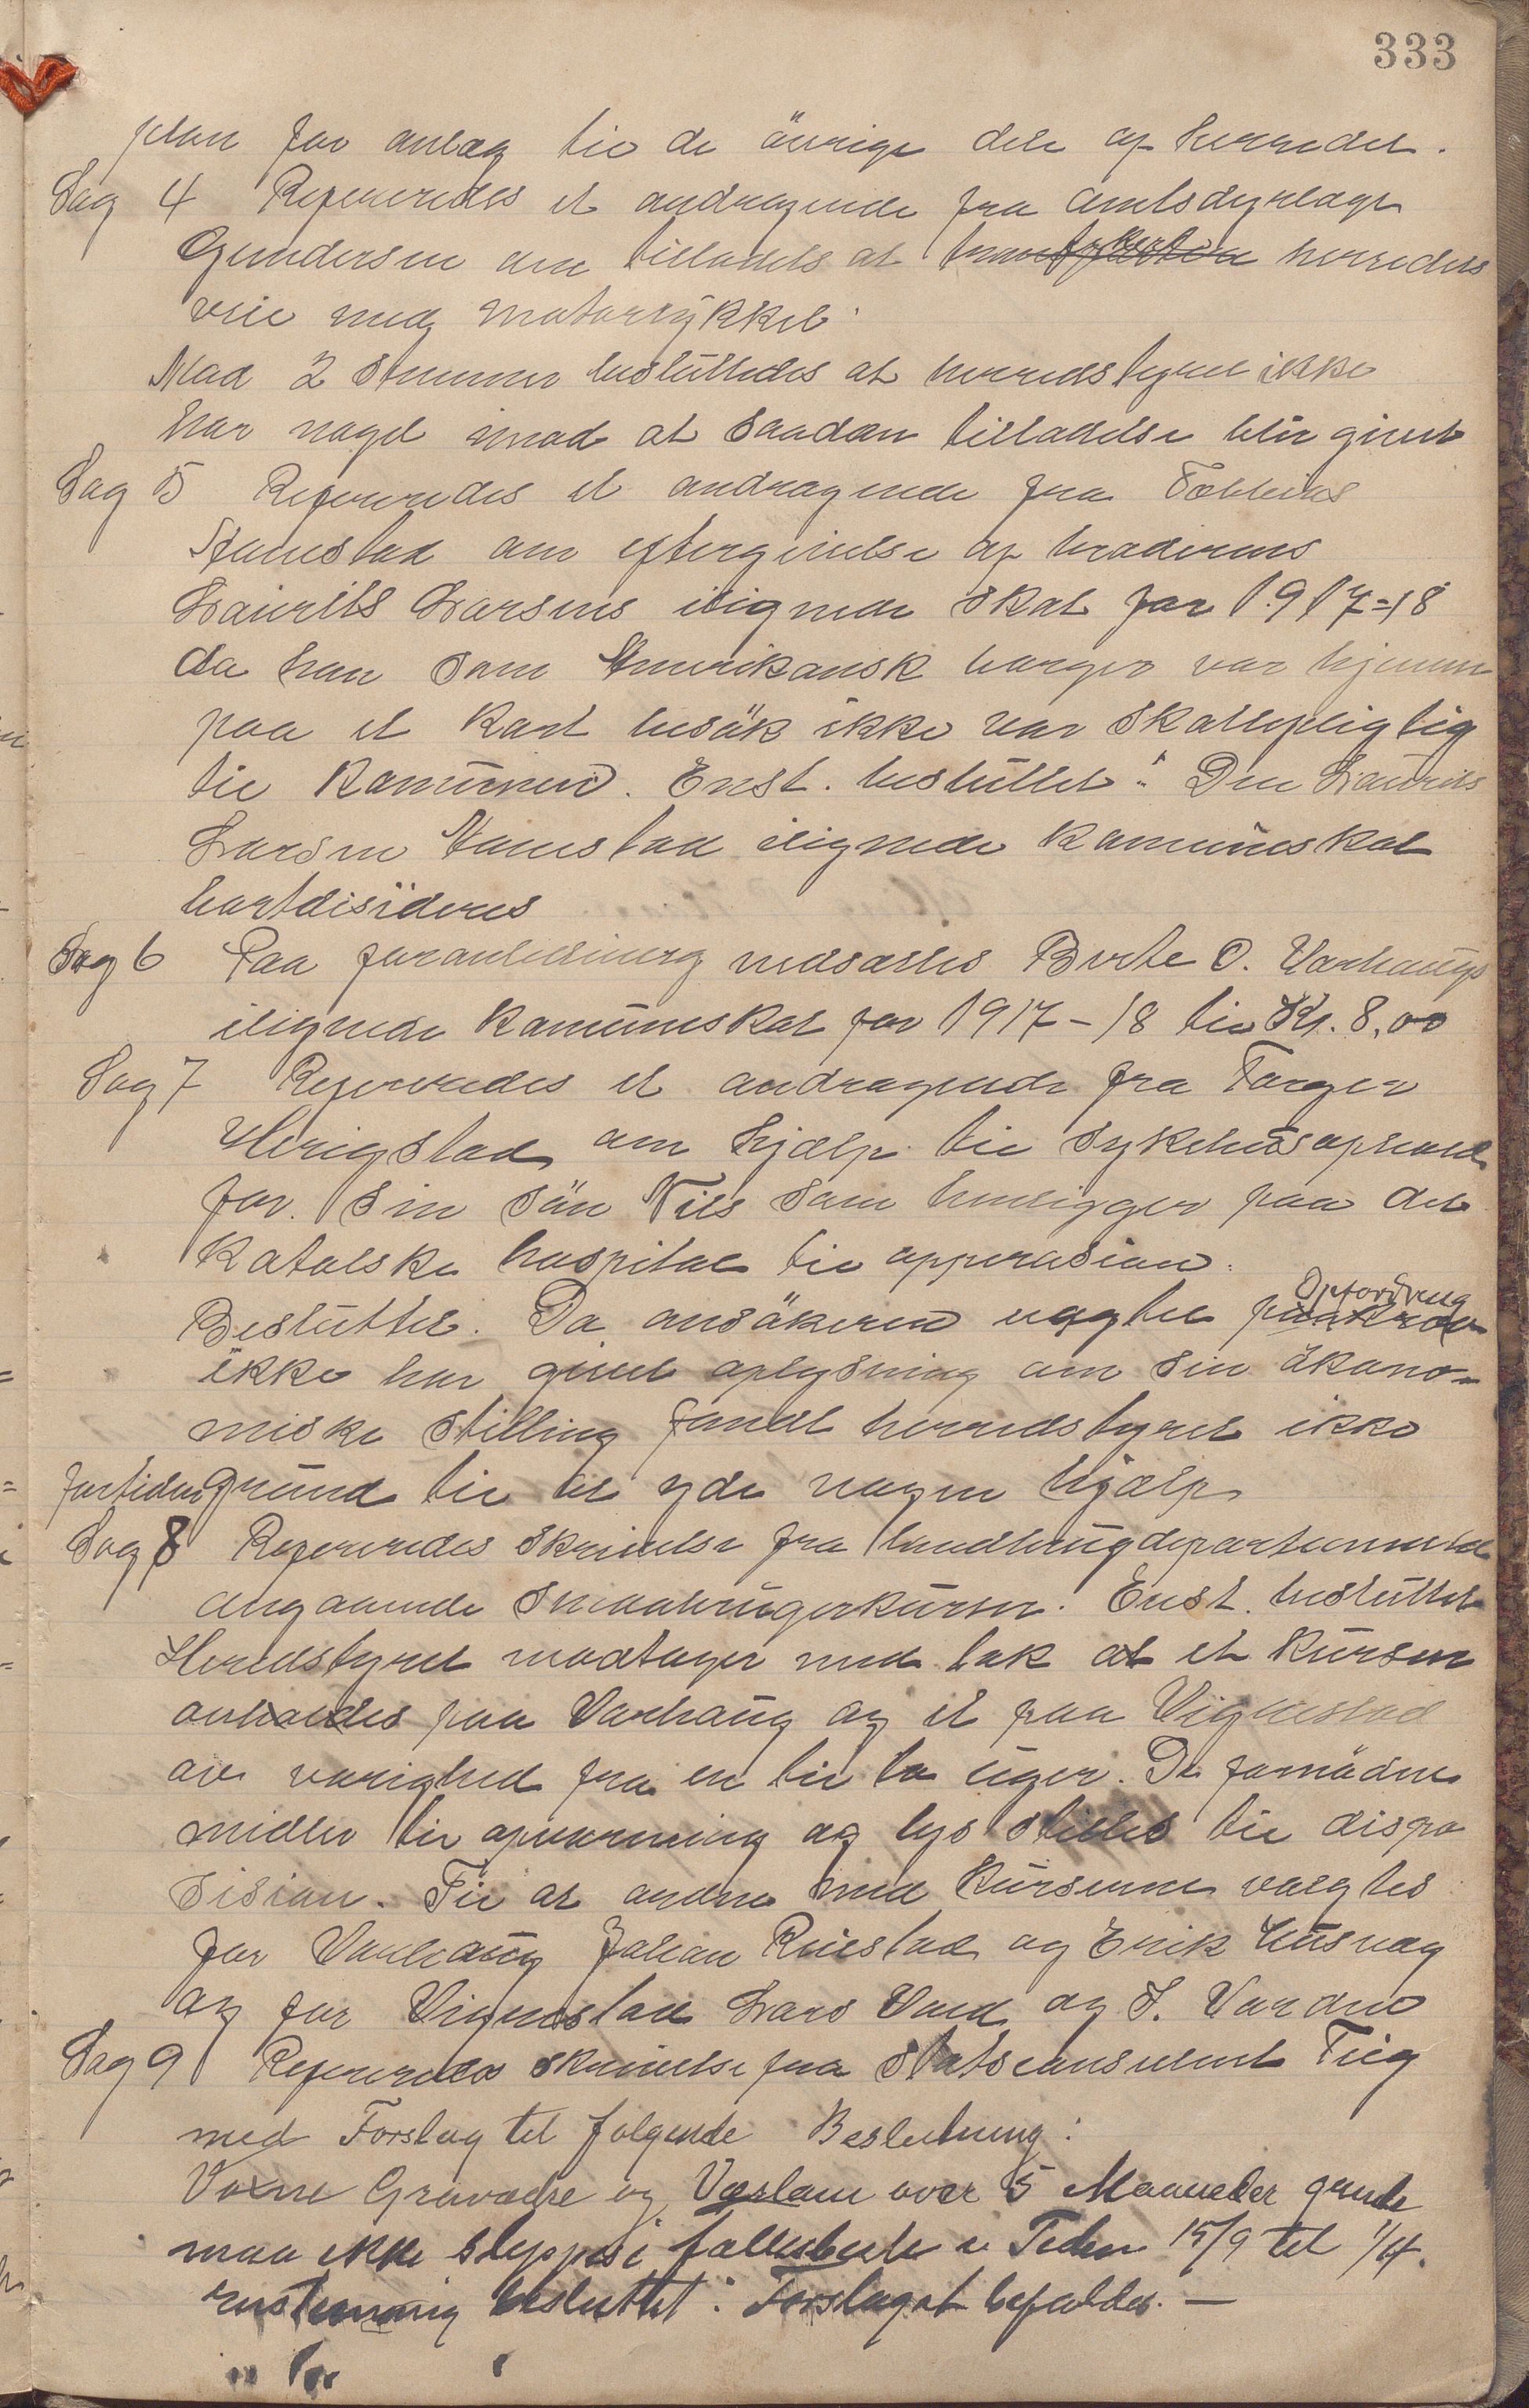 333
plan for anlæg til de övrige dele af herredet.
Sag 4 Refereredes et andragende fra amtsdyrlæge
Gundersen om tilladelse at herredets
veie med motorsykkel.
Mod 2 stemmer besluttedes at herredstyret ikke
har noget imod at saadan tilladelse blir givet
Sag 5 Refereredes et andragende fra
om eftergivelse af broderens
Laurits Larsens ilignede skat for 1917=18
da han som Amerikansk borger var hjemme
paa et kort besök ikke var skattepligtig
til komunen. Enst. besluttet: Den Laurits
Larsen ilignede komuneskat
bortdisideres
Sag 6 Paa foranledning nedsattes Berte O. Varhaugs
ilignede komuneskat for 1917-18 til Kr. 8,00
Sag 7 Refereredes et andragende fra Torger
Herigstad om hjælp til sykehusophold
for sin sön Nils som henligger paa det
katolske hospital til opperasion.
Besluttet. Da ansökeren Opfordring
ikke har givet oplysning om sin ökono-
miske stilling fandt herredstyret ikke
fortiden grund til at yde nogen hjælp
Sag 8 Refereredes skrivelse fra landbrugdepartementet
angaaende smaabrugerkurser. Enst. besluttet
Heredstyret modtager med tak at et kursus
avholdes paa Varhaug og et paa Vigrestad
av varighed fra en til to uger. De fornödne
midler til opvarming og lys stilles til dispo
sision. Til at ordne med kurserne valgtes
for Varhaug Johan Ruestad og Erik Husveg
og for Vigrestad Lars og
Sag 9 Refereredes skrivelse fra statsconsulent
med Forslag til følgende Beslutning:
Voxne Gravædre og Værlam over 5 Maaneder gamle
maa ikke slippes i fællesbeite i Tiden 15/9 til 1/4.
Enstemmig besluttet: Forslaget bifaldes. —